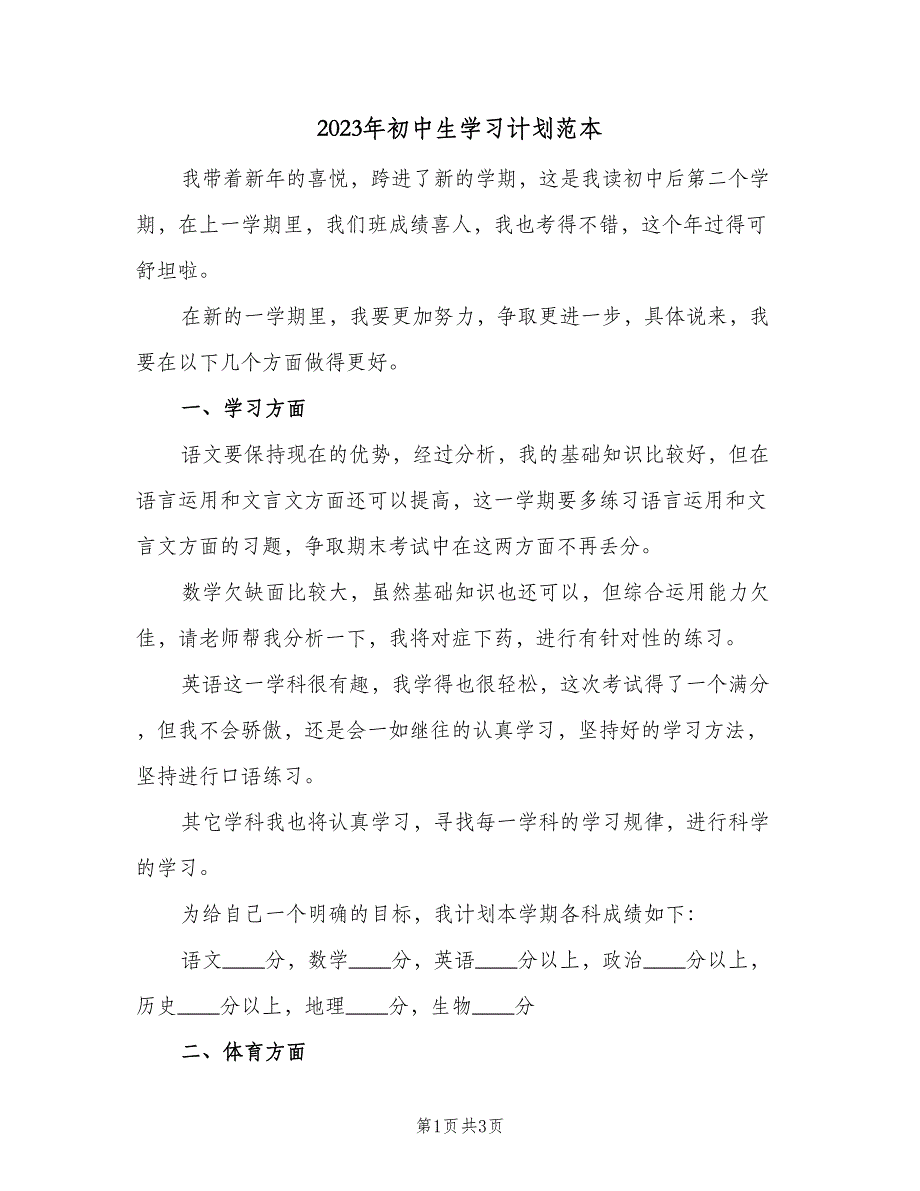 2023年初中生学习计划范本
我带着新年的喜悦，跨进了新的学期，这是我读初中后第二个学
期，在上一学期里，我们班成绩喜人，我也考得不错，这个年过得可
舒坦啦。
在新的一学期里，我要更加努力，争取更进一步，具体说来，我
要在以下几个方面做得更好。
一、学习方面
语文要保持现在的优势，经过分析，我的基础知识比较好，但在
语言运用和文言文方面还可以提高，这一学期要多练习语言运用和文
言文方面的习题，争取期末考试中在这两方面不再丢分。
数学欠缺面比较大，虽然基础知识也还可以，但综合运用能力欠
佳，请老师帮我分析一下，我将对症下药，进行有针对性的练习。
英语这一学科很有趣，我学得也很轻松，这次考试得了一个满分
，但我不会骄傲，还是会一如继往的认真学习，坚持好的学习方法，
坚持进行口语练习。
其它学科我也将认真学习，寻找每一学科的学习规律，进行科学
的学习。
为给自己一个明确的目标，我计划本学期各科成绩如下：
语文____分，数学____分，英语____分以上，政治____分以上，
历史____分以上，地理____分，生物____分
二、体育方面
第1页 共3页